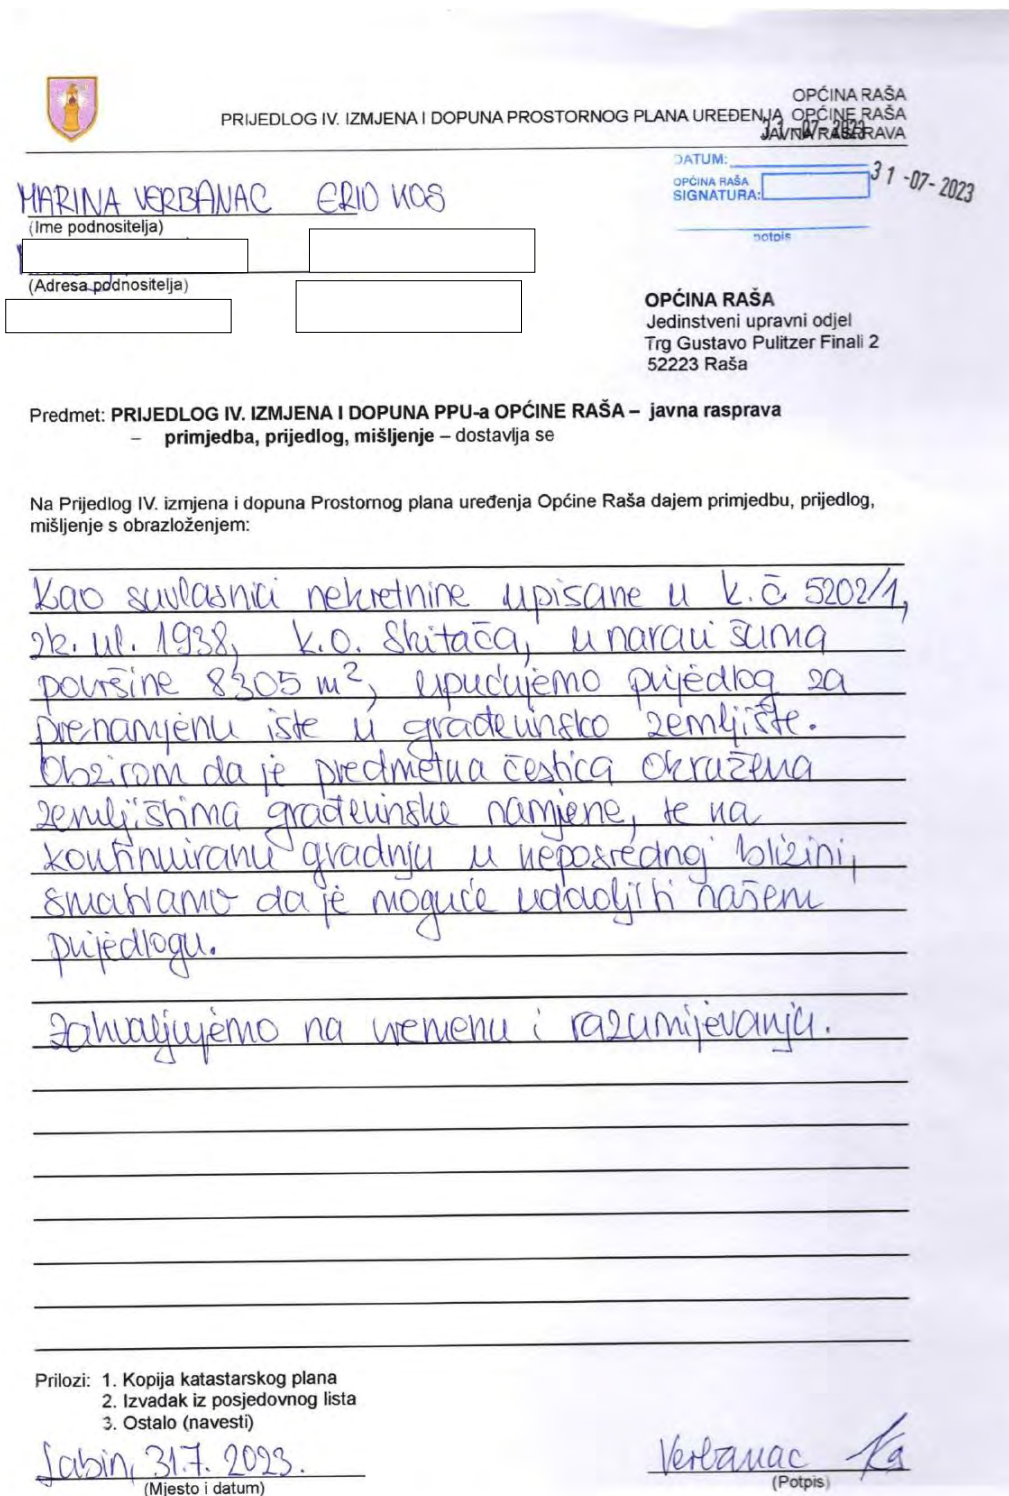 OPĆINA RAŠA
PRIJEDLOG IV. IZMJENA I DOPUNA PROSTORNOG PLANA UREĐENJA OPĆINE RAŠA
JAVNA RASPRAVA
31 -07- 2023
DATUM:
OPĆINA RAŠA
SIGNATURA:
31 -07- 2023
potpis
MARINA VERBANAC ERIO KOS
(Ime podnositelja)
(Adresa podnositelja)
OPĆINA RAŠA
Jedinstveni upravni odjel
Trg Gustavo Pulitzer Finali 2
52223 Raša
Predmet: PRIJEDLOG IV. IZMJENA I DOPUNA PPU-a OPĆINE RAŠA – javna rasprava
– primjedba, prijedlog, mišljenje – dostavlja se
Na Prijedlog IV. izmjena i dopuna Prostornog plana uređenja Općine Raša dajem primjedbu, prijedlog,
mišljenje s obrazloženjem:
Kao suvlasnici nekretnine upisane u k.č 5202/1,
zk. ul. 1938, k.o. Skitača, u naravi šuma
površine 8305 m², upućujemo prijedlog za
prenamjenu iste u građevinsko zemljište.
Obzirom da je predmetna čestica okružena
zemljištima građevinske namjene, te na
kontinuiranu gradnju u neposrednoj blizini,
smatramo da je moguće udovoljiti našem
prijedlogu.
Zahvaljujemo na vremenu i razumijevanju.
Prilozi: 1. Kopija katastarskog plana
2. Izvadak iz posjedovnog lista
3. Ostalo (navesti)
Labin, 31.7. 2023.
(Mjesto i datum)
Verbanac
(Potpis)